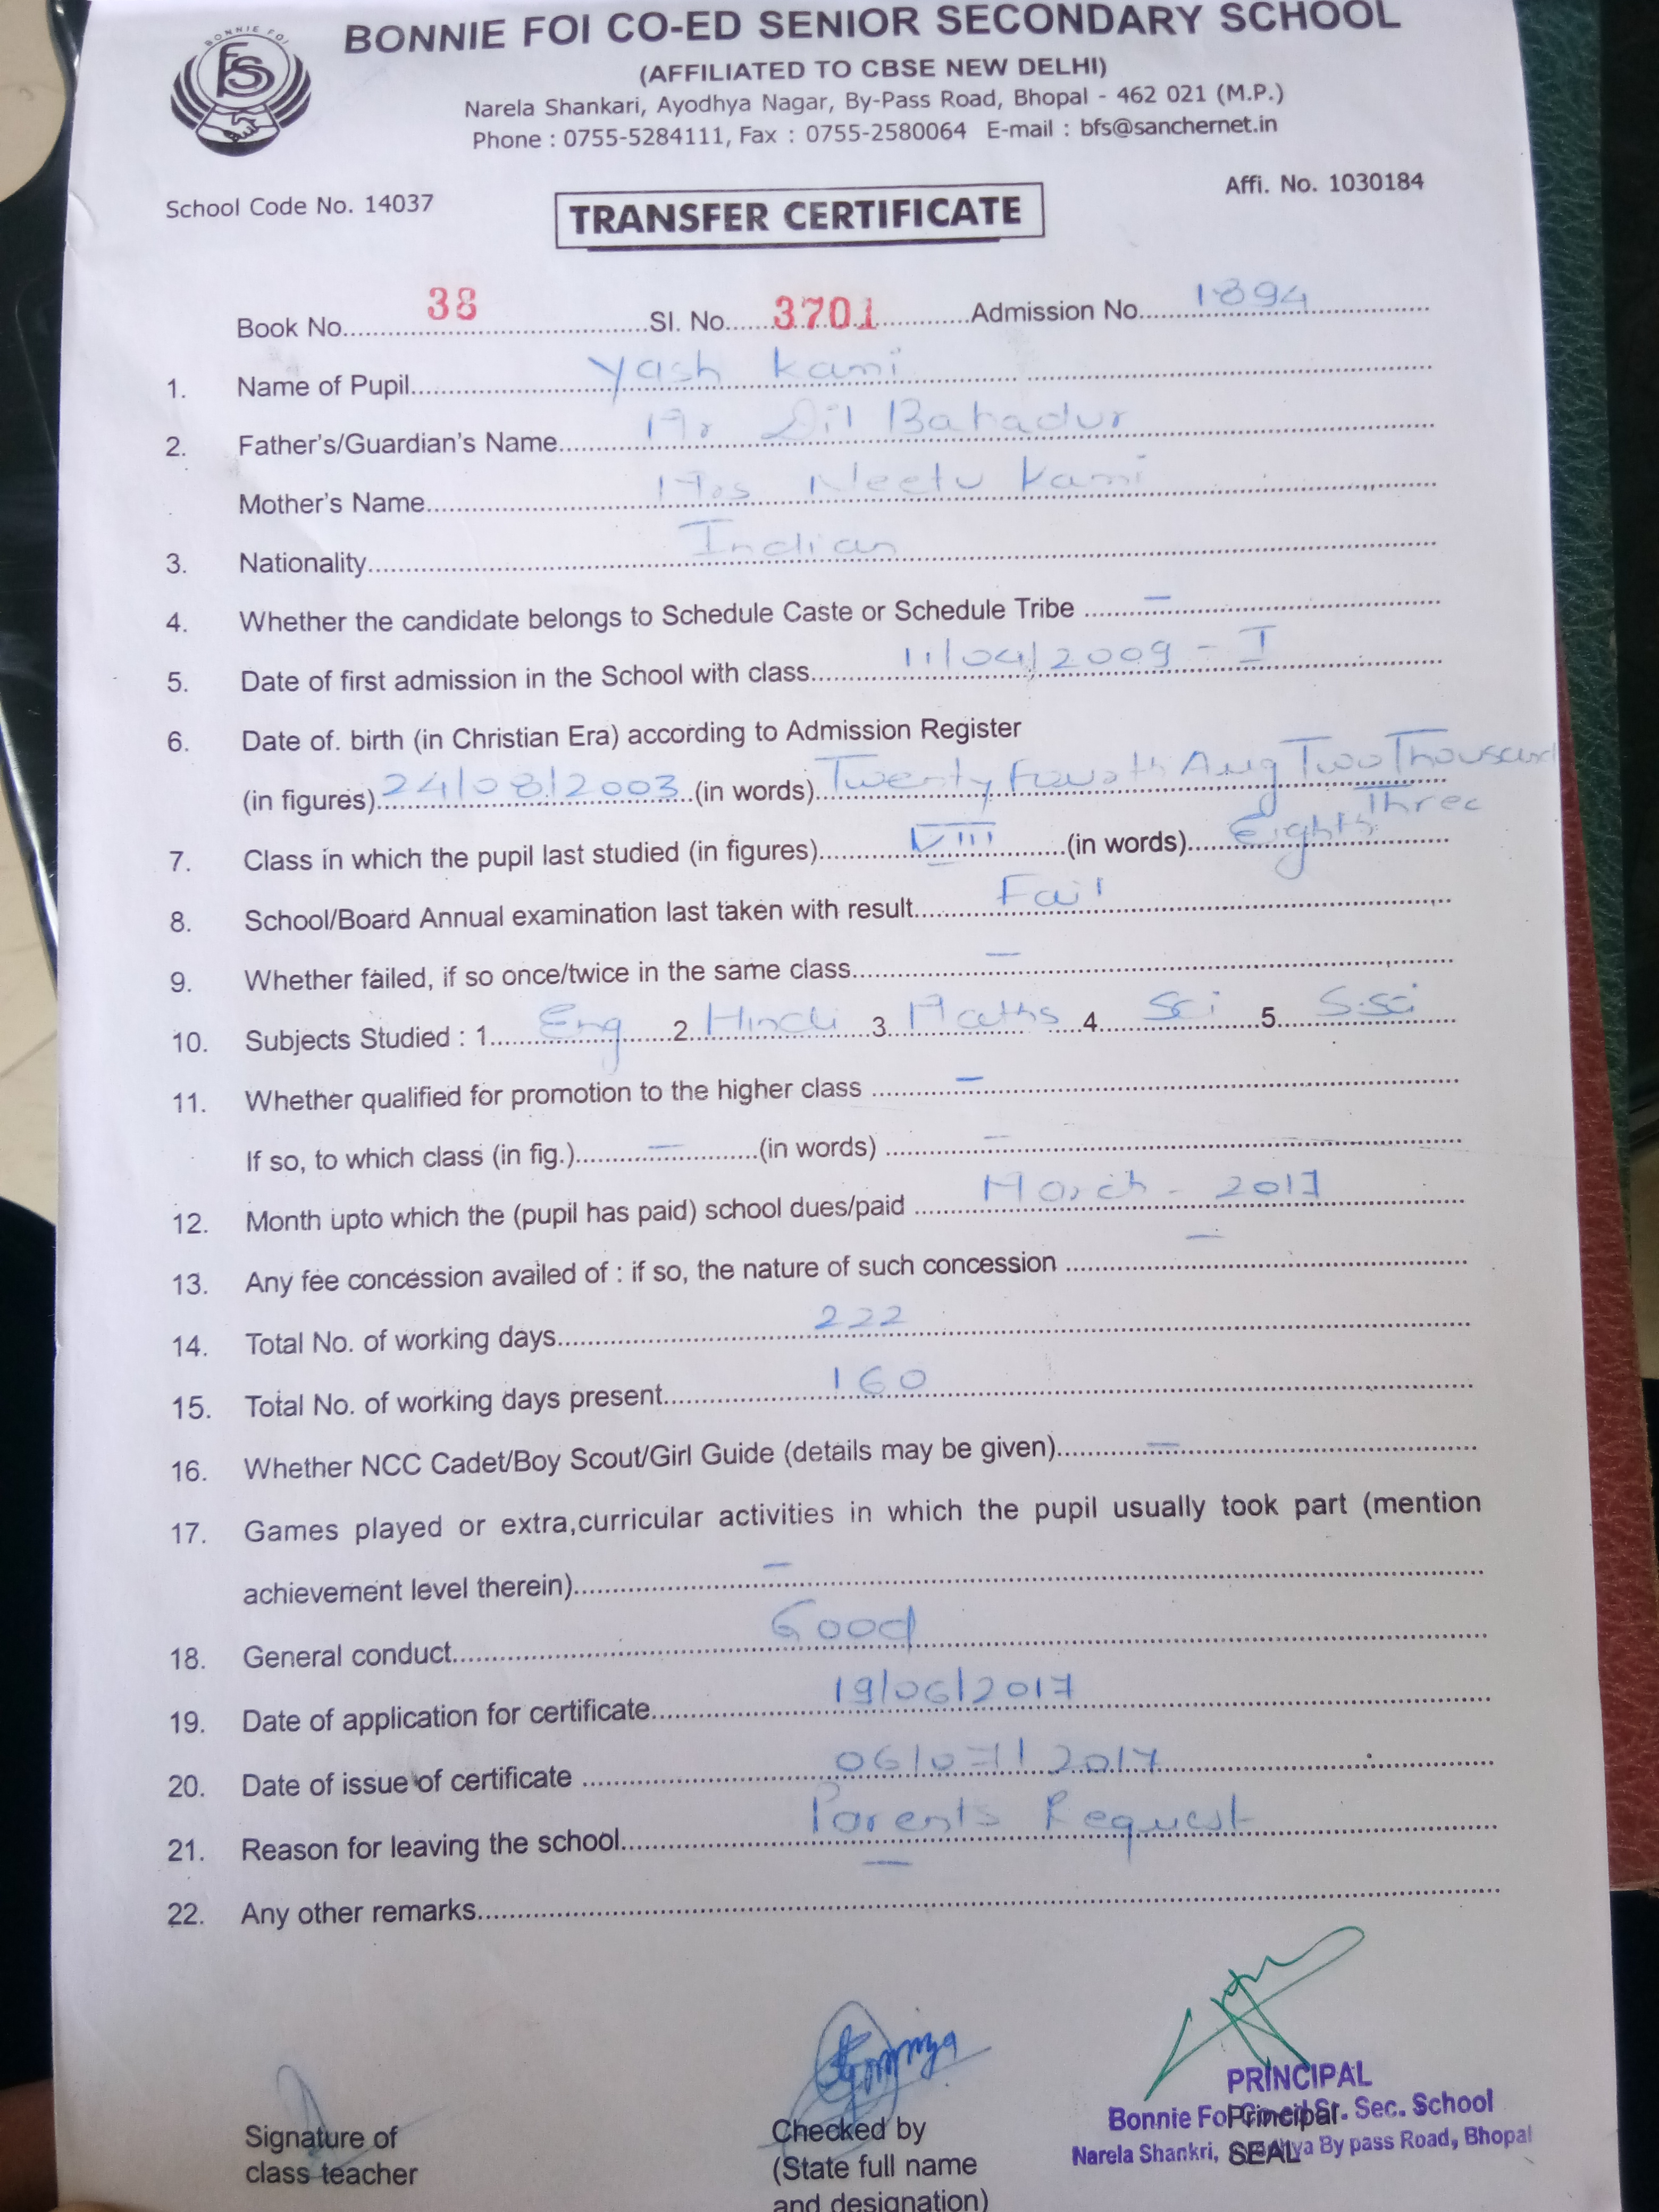 BONNIE FOI
FS
BONNIE FOI CO-ED SENIOR SECONDARY SCHOOL
(AFFILIATED TO CBSE NEW DELHI)
Narela Shankari, Ayodhya Nagar, By-Pass Road, Bhopal - 462 021 (M.P.)
Phone : 0755-5284111, Fax : 0755-2580064 E-mail : bfs@sanchernet.in
School Code No. 14037 Affi. No. 1030184
TRANSFER CERTIFICATE
Book No. 38 Sl. No. 3701 Admission No. 1894
1. Name of Pupil Yash Kami
2. Father's/Guardian's Name Mr Dil Bahadur
Mother's Name Mrs Neetu Kami
3. Nationality Indian
4. Whether the candidate belongs to Schedule Caste or Schedule Tribe –
5. Date of first admission in the School with class 11/04/2009 - I
6. Date of. birth (in Christian Era) according to Admission Register
(in figures) 24/08/2003 (in words) Twenty Fourth Aug Two Thousand
Three
7. Class in which the pupil last studied (in figures) VIII (in words) Eighth
8. School/Board Annual examination last taken with result Fail
9. Whether failed, if so once/twice in the same class –
10. Subjects Studied : 1. Eng 2. Hindi 3. Maths 4. Sci 5. S.Sci
11. Whether qualified for promotion to the higher class –
If so, to which class (in fig.) – (in words) –
12. Month upto which the (pupil has paid) school dues/paid March - 2017
13. Any fee concession availed of : if so, the nature of such concession –
14. Total No. of working days 222
15. Total No. of working days present 160
16. Whether NCC Cadet/Boy Scout/Girl Guide (details may be given) –
17. Games played or extra,curricular activities in which the pupil usually took part (mention
achievement level therein) –
18. General conduct Good
19. Date of application for certificate 19/06/2017
20. Date of issue of certificate 06/07/2017
21. Reason for leaving the school Parents Request
22. Any other remarks –
Signature of
class teacher
Checked by
(State full name
and designation)
PRINCIPAL
Bonnie Foi Sr. Sec. School
Narela Shankri, By pass Road, Bhopal
Principal
SEAL